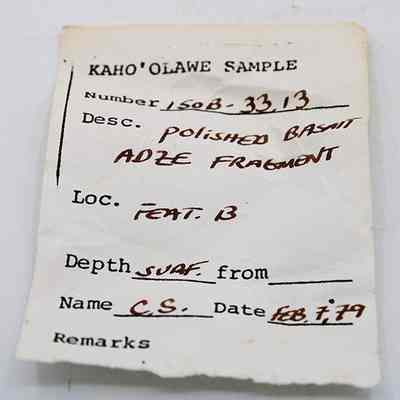 KAHO'OLAWE SAMPLE
Number 150B-33,13
Desc. POLISHED BASALT
ADZE FRAGMENT
Loc. FEAT. B
Depth SURF. from
Name C.S. Date FEB. 7, 79
Remarks